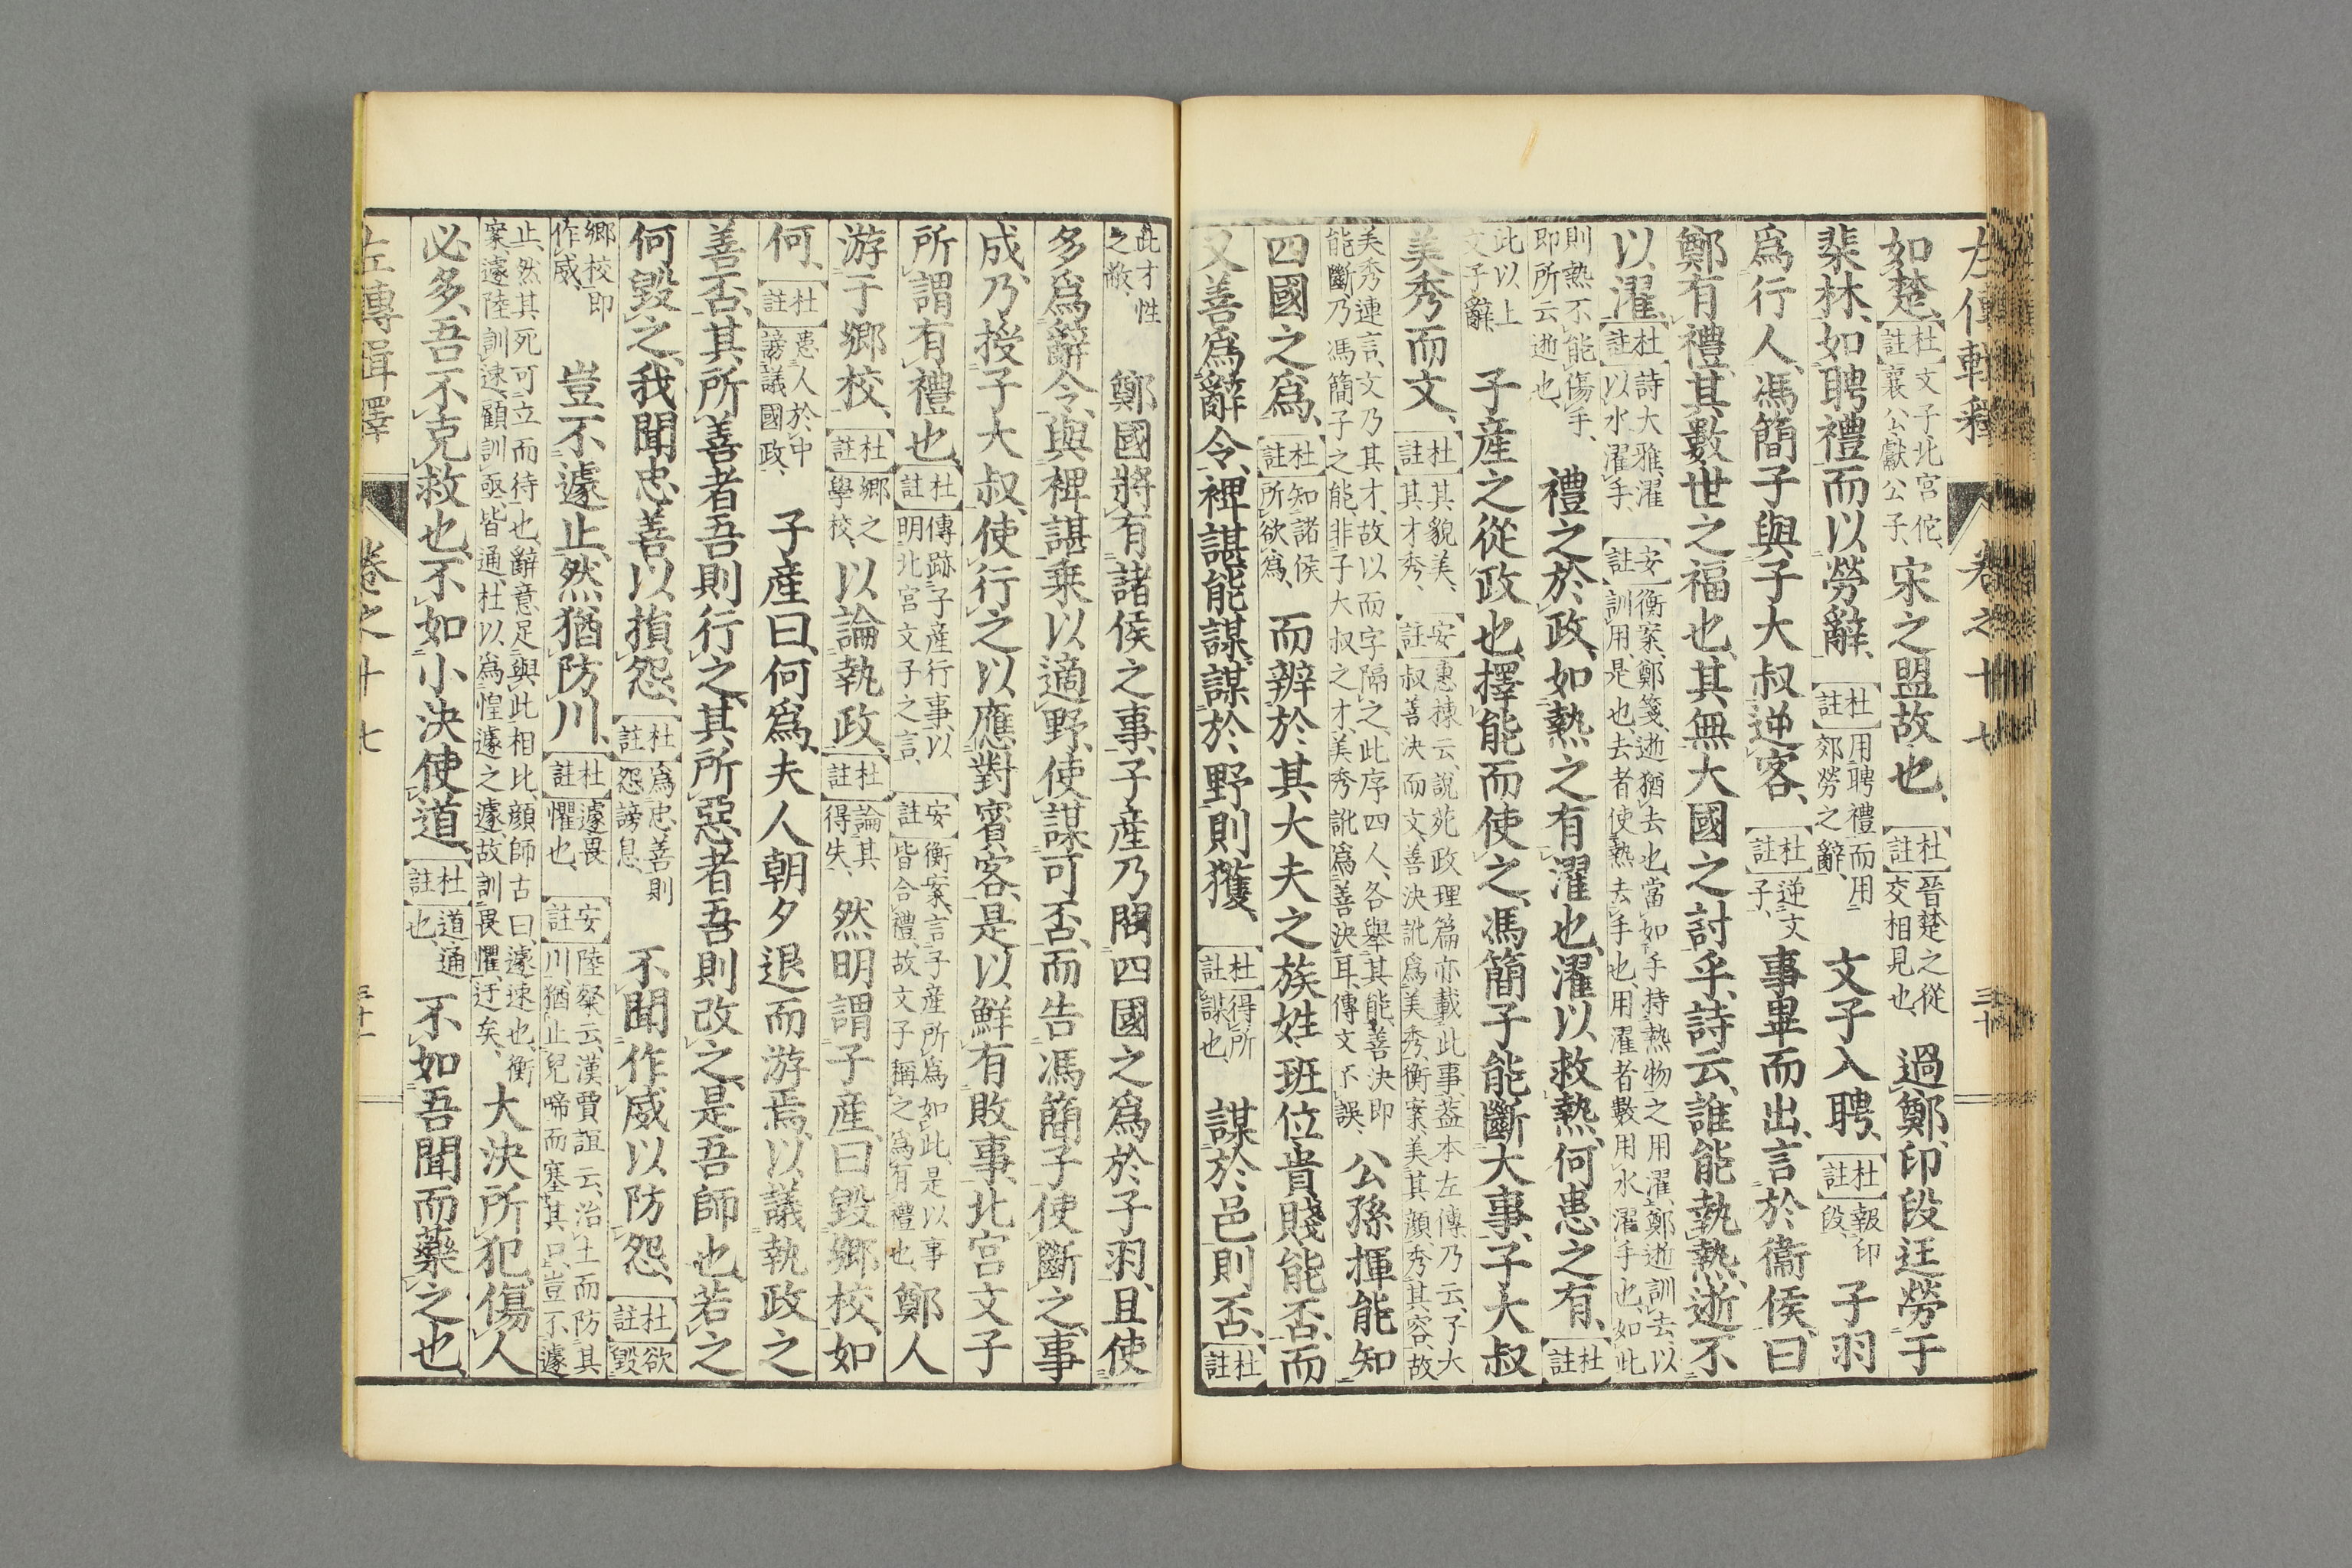 左傳輯釋　卷之十七　三十
如楚、【杜註】文子北宮佗、襄公獻公子、宋之盟故也、【杜註】晉楚之從交相見也、過鄭、印段迋勞于
棐林、如聘禮而以勞辭、【杜註】用聘禮而用郊勞之辭、文子入聘、【杜註】報印段、子羽
爲行人、馮簡子與子大叔逆客、【杜註】逆文子、事畢而出、言於衞侯、曰
鄭有禮、其數世之福也、其無大國之討乎、詩云、誰能執熱、逝不
以濯、【杜註】詩大雅、濯以水濯手、【安註】衡案、鄭箋、逝猶去也、當如手持熱物之用濯、鄭逝訓去、以訓用、是也、去者使熱去手也、用濯者數用水濯手也、如此
則熱不能傷手、即所云逝也、禮之於政、如熱之有濯也、濯以救熱、何患之有、【杜註】
此以上文子辭、子產之從政也、擇能而使之、馮簡子能斷大事、子大叔
美秀而文、【杜註】其貌美、其才秀、【安註】惠棟云、說苑政理篇亦載此事、葢本左傳、乃云、子大叔善決而文、善決訛爲美秀、衡案、美其顏、秀其容、故
美秀連言、文乃其才、故以而字隔之、此序四人、各舉其能、善決即能斷、乃馮簡子之能、非子大叔之才、美秀訛爲善決耳、傳文不誤、公孫揮能知
四國之爲、【杜註】知諸侯所欲爲、而辨於其大夫之族姓班位貴賤能否、而
又善爲辭令、裨諶能謀、謀於野則獲、【杜註】得所謀也、謀於邑則否、【杜註】
此才性之蔽、鄭國將有諸侯之事、子產乃問四國之爲於子羽、且使
多爲辭令、與裨諶乘以適野、使謀可否、而告馮簡子使斷之、事
成、乃授子大叔、使行之以應對賓客、是以鮮有敗事、北宮文子
所謂有禮也、【杜註】傳跡子產行事、以明北宮文子之言、【安註】衡案、言子產所爲如此、是以事皆合禮、故文子稱之爲有禮也、鄭人
游于鄉校、【杜註】鄉之學校、以論執政、【杜註】論其得失、然明謂子產、曰毀鄉校、如
何、【杜註】患人於中謗議國政、子產曰、何爲、夫人朝夕退而游焉、以議執政之
善否、其所善者吾則行之、其所惡者吾則改之、是吾師也、若之
何毀之、我聞忠善以損怨、【杜註】爲忠善則怨謗息、不聞作威以防怨、【杜註】欲毀
鄉校即作威、豈不遽止、然猶防川、【杜註】遽畏懼也、【安註】陸粲云、漢賈誼云、治土而防其川、猶止兒啼而塞其口、豈不遽
止、然其死可立而待也、辭意足與此相比、顏師古曰、遽速也、衡案、遽陸訓速、顧訓亟、皆通、杜以爲惶遽之遽、故訓畏懼、迂矣、大決所犯、傷人
必多、吾不克救也、不如小決使道、【杜註】道通也、不如吾聞而藥之也、
左傳輯釋　卷之十七　三十一